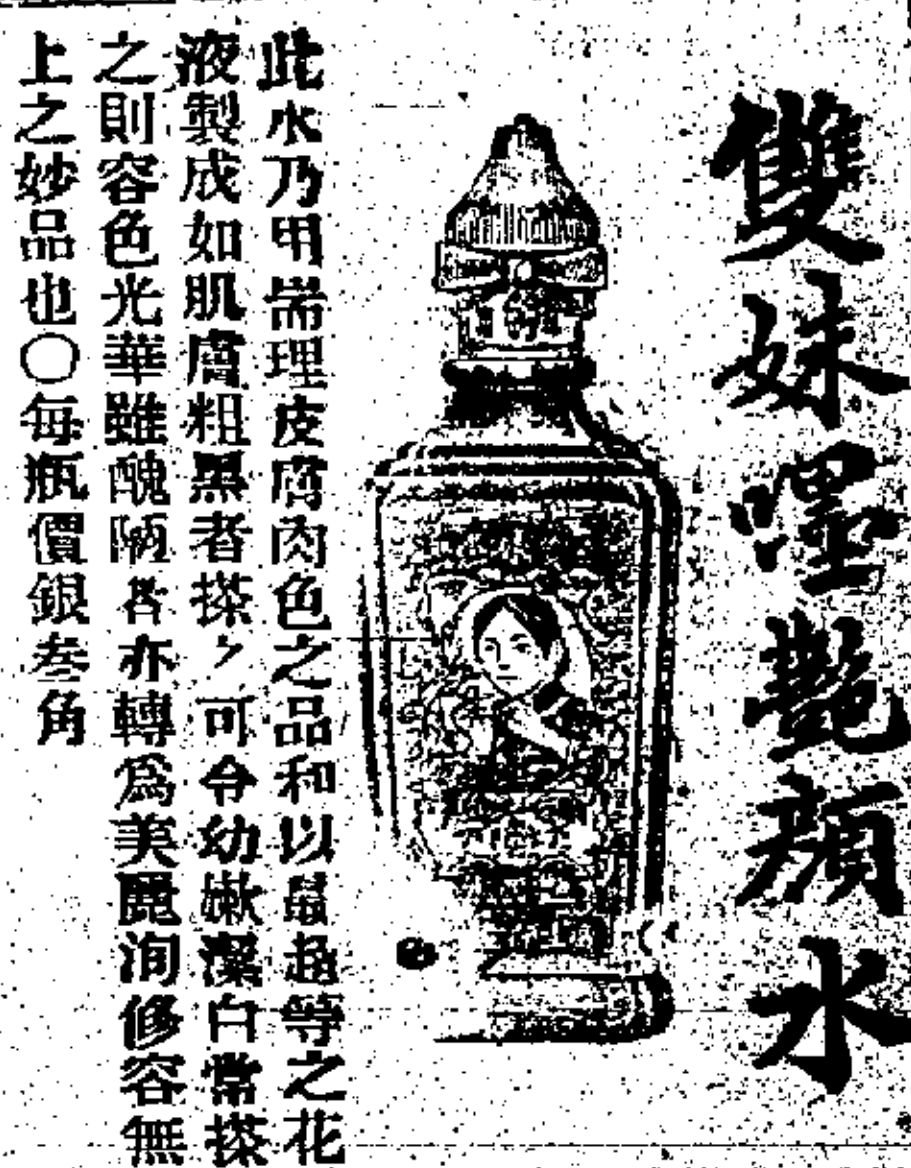 雙妹嚜艷顏水
此水乃用耑理皮膚肉色之品和以最超等之花
液製成如肌膚粗黑者搽ゝ可令幼嫩潔白常搽
之則容色光華雖醜陋者亦轉爲美麗洵修容無
上之妙品也○每瓶價銀叁角